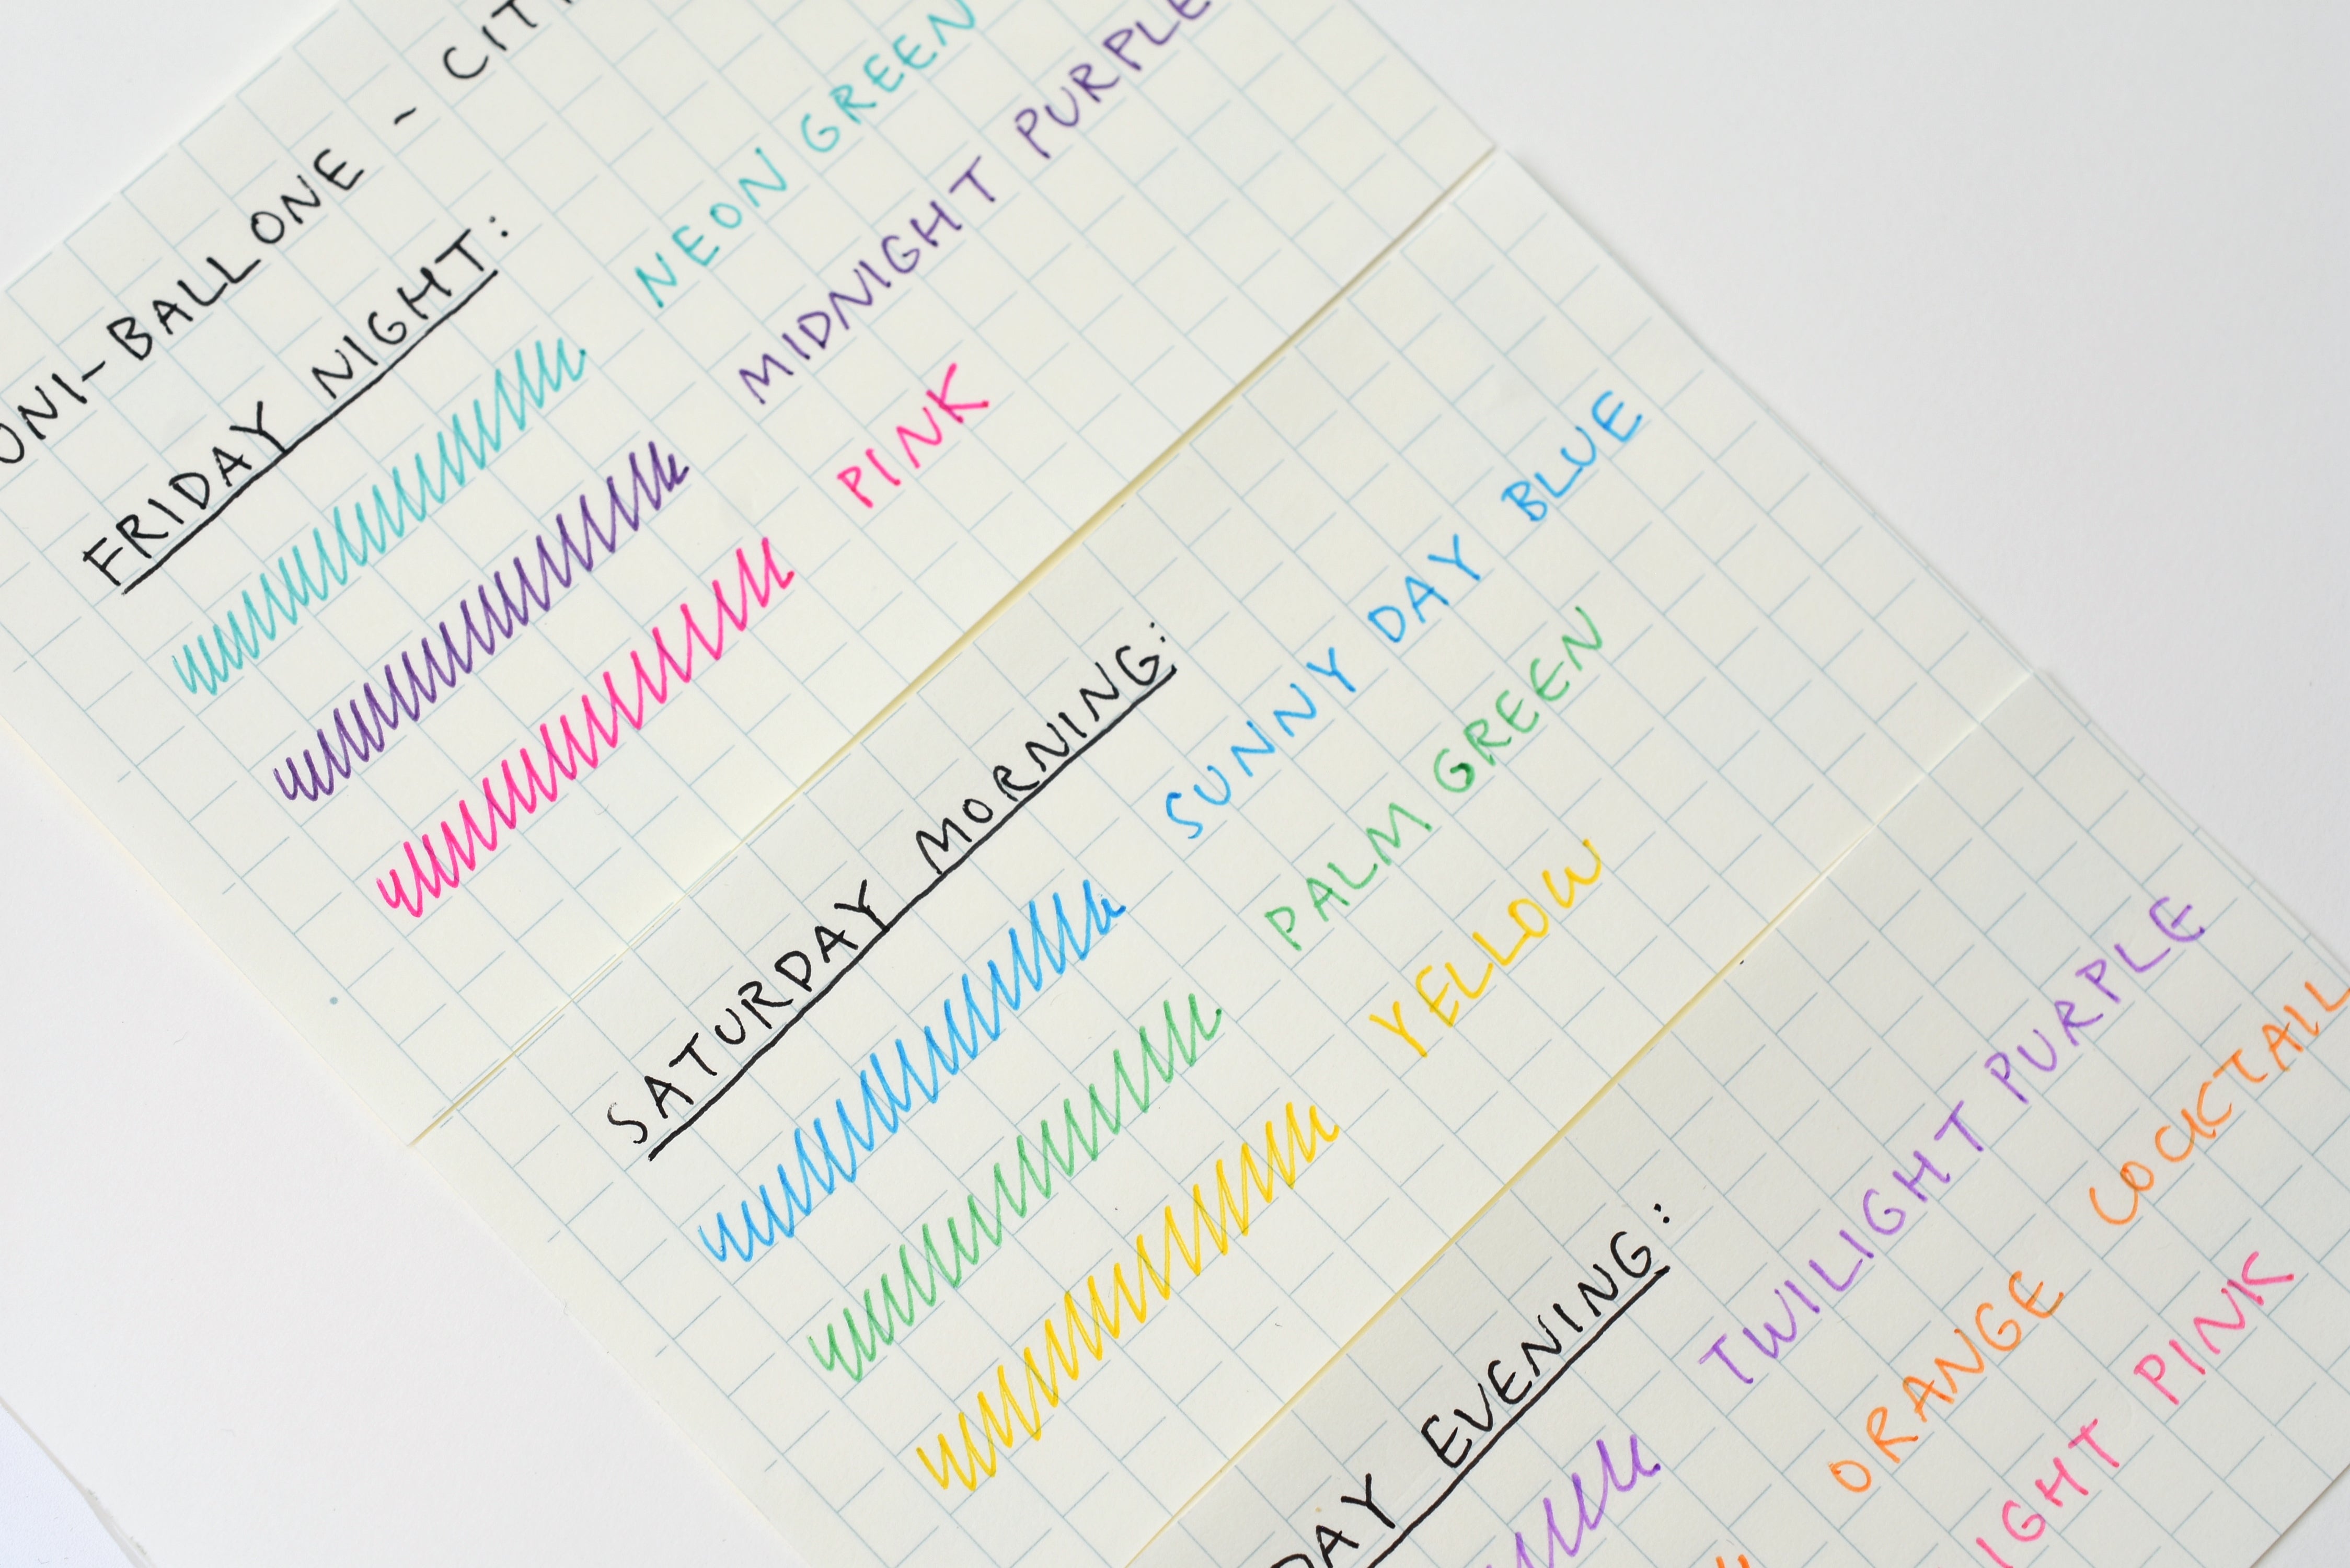 UNI-BALL ONE - CIT
FRIDAY NIGHT:
NEON GREEN
MIDNIGHT PURPLE
PINK
SATURDAY MORNING:
SUNNY DAY BLUE
PALM GREEN
YELLOW
DAY EVENING:
TWILIGHT PURPLE
ORANGE COCKTAIL
IGHT PINK